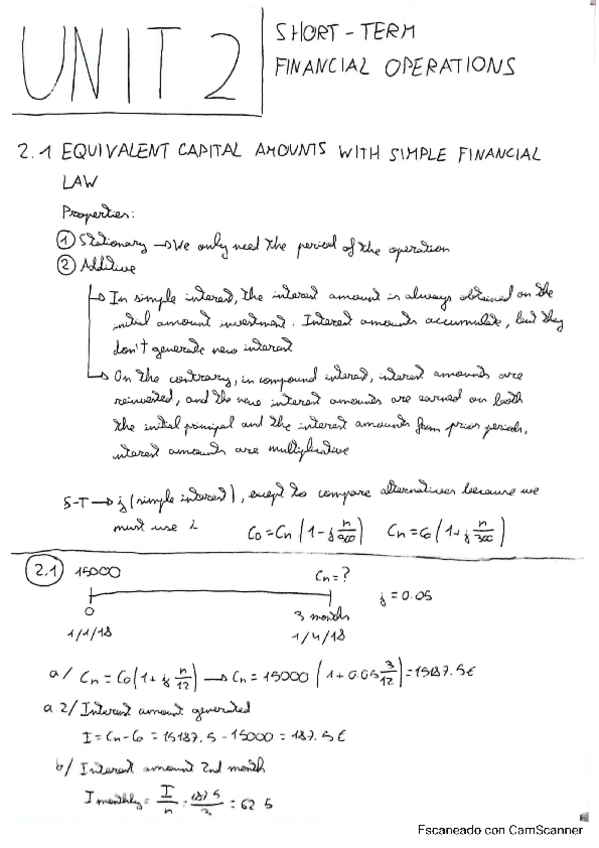 UNIT 2
SHORT-TERM
FINANCIAL OPERATIONS
2.1 EQUIVALENT CAPITAL AMOUNTS WITH SIMPLE FINANCIAL
LAW
Properties:
① Stationary → We only need the period of the operation
② Additive
↳ In simple interest, the interest amount is always obtained on the
initial amount investment. Interest amounts accumulate, but they
don't generate new interest
↳ On the contrary, in compound interest, interest amounts are
reinvested, and the new interest amounts are earned on both
the initial principal and the interest amounts from prior periods,
interest amounts are multiplicative
S-T → j (simple interest), except to compare alternatives because we
must use i C0=Cn(1-j n/360) Cn=C0(1+j n/360)
2.1 15000 Cn=?
j=0.05
0 3 months
1/1/18 1/4/18
a/ Cn=C0(1+j n/12) → Cn=15000(1+0.05 3/12)=15187.5€
a2/ Interest amount generated
I=Cn-C0=15187.5-15000=187.5€
b/ Interest amount 2nd month
I monthly = I/n = 187.5/3 = 62.5
Escaneado con CamScanner